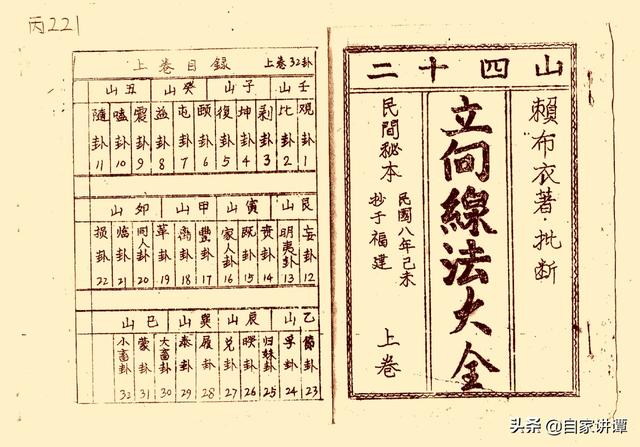 丙221
二十四山
賴布衣著·批断
立向線法大全
民間秘本
民國八年己未
抄于福建
上卷
上卷目録
上卷32卦
壬山
子山
癸山
丑山
观卦1
比卦2
剥卦3
坤卦4
復卦5
頤卦6
屯卦7
益卦8
震卦9
嗑卦10
隨卦11
艮山
寅山
甲山
卯山
妄卦12
明夷卦13
贲卦14
既卦15
家人卦16
豐卦17
离卦18
革卦19
同人卦20
临卦21
损卦22
乙山
辰山
巽山
巳山
節卦23
孚卦24
归妹卦25
睽卦26
兑卦27
履卦28
泰卦29
大畜卦30
蒙卦31
小畜卦32
头条 @自家讲谭